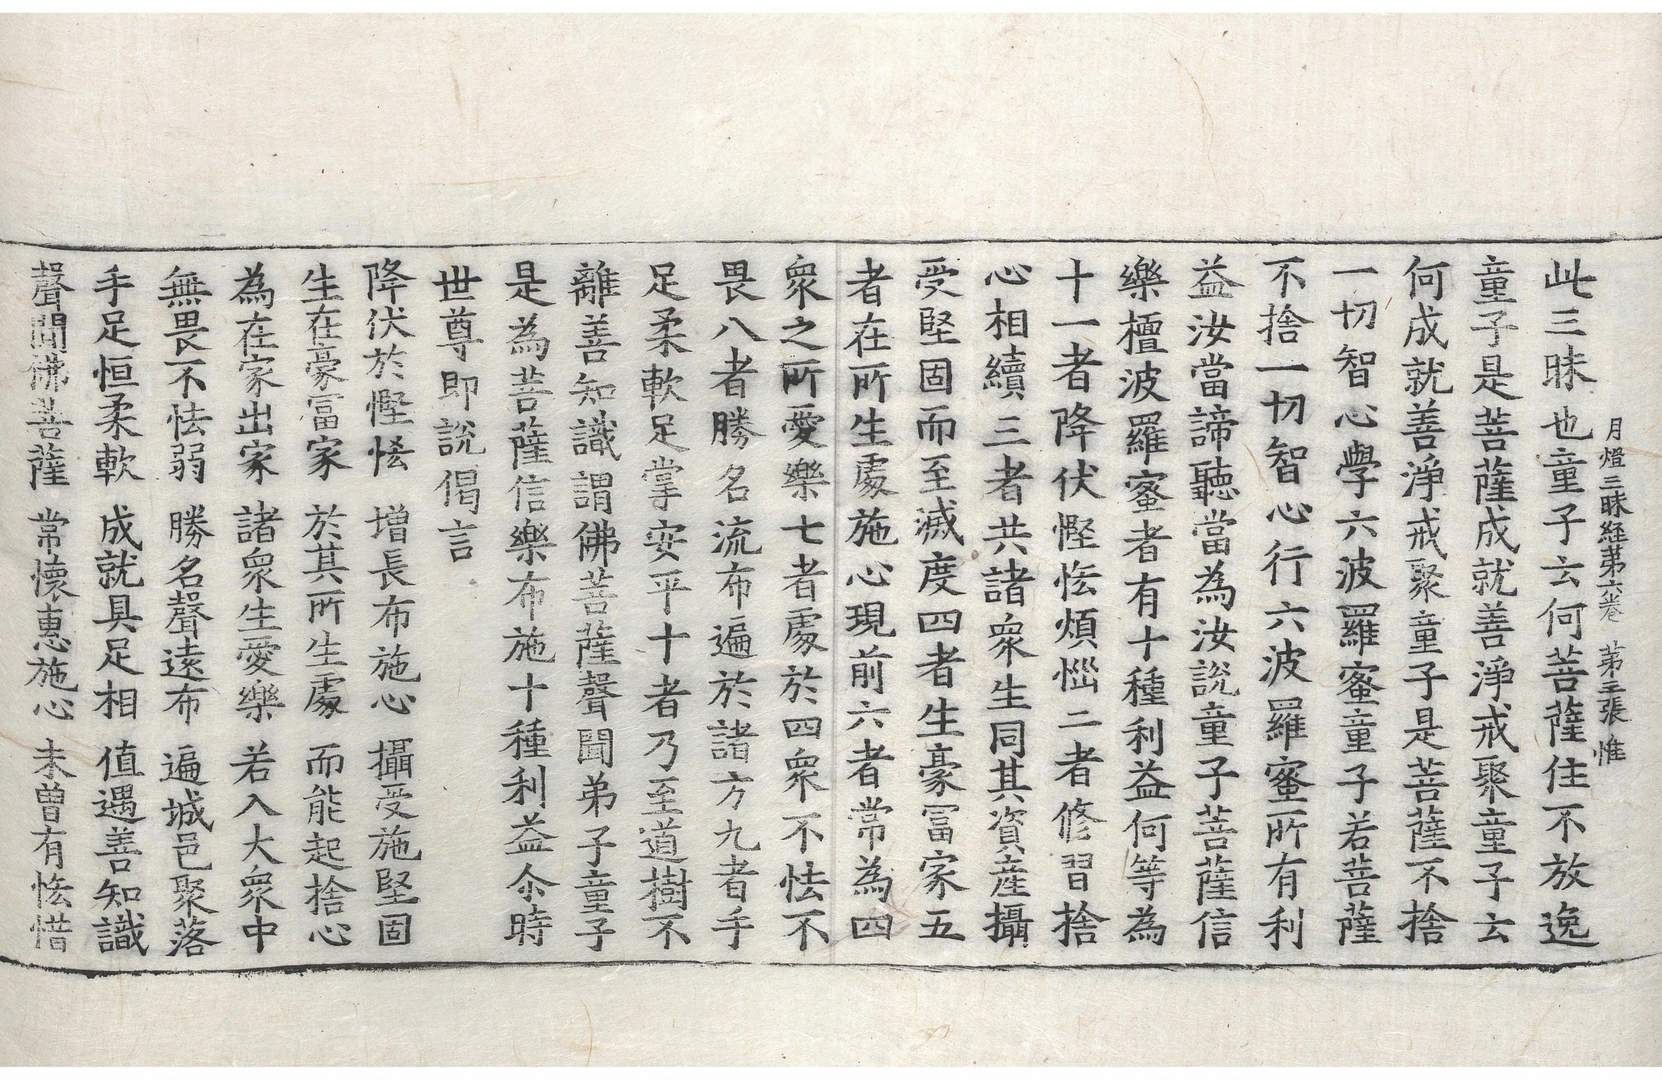 月燈三昧経第六卷 第三張 惟
此三昧也童子云何菩薩住不放逸
童子是菩薩成就善淨戒聚童子云
何成就善淨戒聚童子是菩薩不捨
一切智心學六波羅蜜童子若菩薩
不捨一切智心行六波羅蜜所有利
益汝當諦聽當為汝說童子菩薩信
樂檀波羅蜜者有十種利益何等為
十一者降伏慳悋煩惱二者修習捨
心相續三者共諸衆生同其資産攝
受堅固而至滅度四者生豪冨家五
者在所生處施心現前六者常為四
衆之所愛樂七者處於四衆不怯不
畏八者勝名流布遍於諸方九者手
足柔軟足掌安平十者乃至道樹不
離善知識謂佛菩薩聲聞弟子童子
是為菩薩信樂布施十種利益尒時
世尊即說偈言
降伏於慳悋 增長布施心 攝受施堅固
生在豪冨家 於其所生處 而能起捨心
為在家出家 諸衆生愛樂 若入大衆中
無畏不怯弱 勝名聲遠布 遍城邑聚落
手足恒柔軟 成就具足相 值遇善知識
聲聞佛菩薩 常懷惠施心 未曾有悋惜